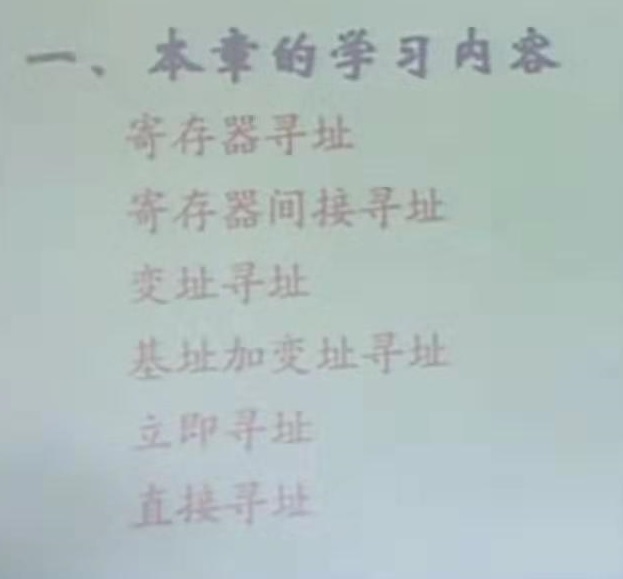 一、本章的学习内容
寄存器寻址
寄存器间接寻址
变址寻址
基址加变址寻址
立即寻址
直接寻址